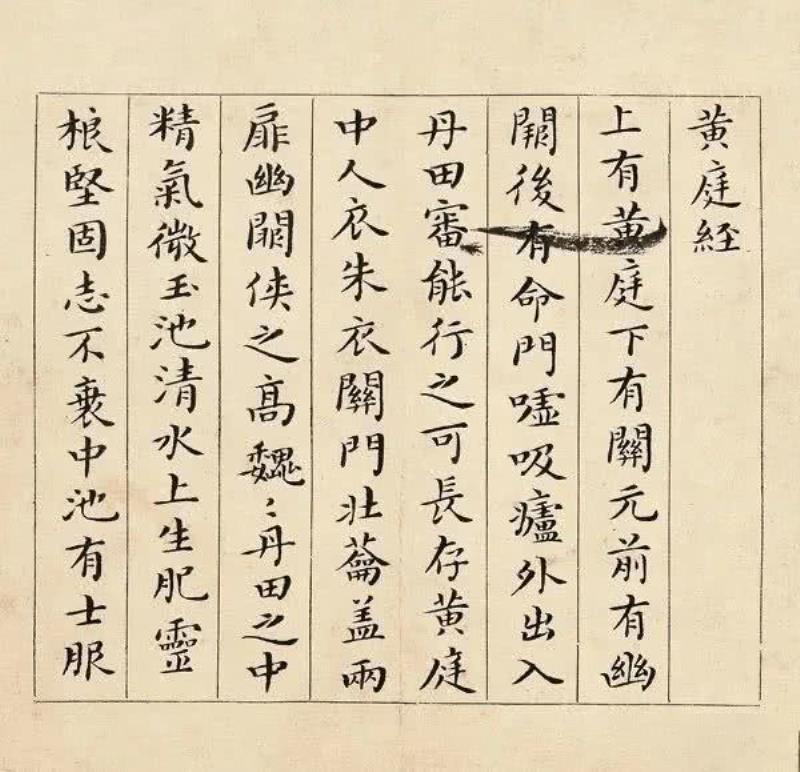 黄庭経
上有黄庭下有關元前有幽
闕後有命門嘘吸廬外出入
丹田審能行之可長存黄庭
中人衣朱衣關門壮蘥盖兩
扉幽闕侠之高巍〻丹田之中
精氣微玉池清水上生肥靈
根堅固志不衰中池有士服